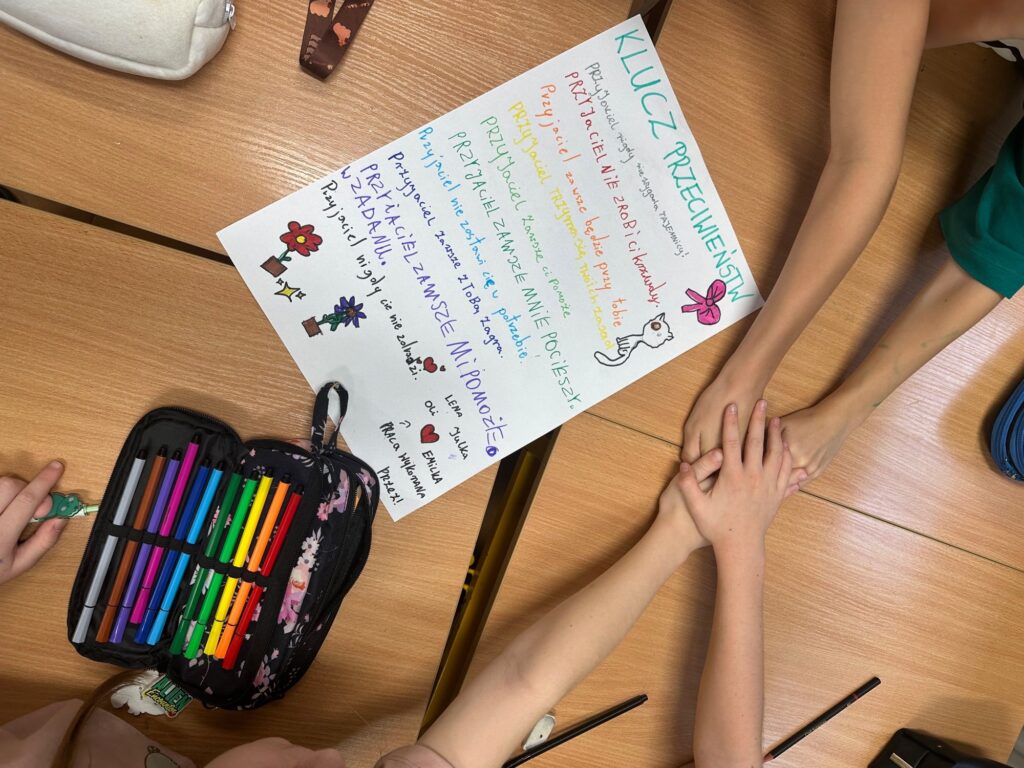 KLUCZ PRZECIWIEŃSTW
PRZYJACIEL nigdy nie zdradza TAJEMNICY!
PRZYJACIEL NIE ZROBI CI KRZYWDY.
Przyjaciel zawsze będzie przy tobie
PRZYJACIEL TRZYMA się twoich zasad
PRZYJACIEL zawsze ci pomoże
PRZYJACIEL ZAWSZE MNIE POCIESZY.
Przyjaciel nie zostawi cię w potrzebie.
Przyjaciel zawsze z Tobą zagra.
PRZYJACIEL ZAWSZE MI POMOŻE
W ZADANIU.
Przyjaciel nigdy cie nie zdradzi.
LENA Julka
Oli EMILKA
PRACA WYKONANA
PRZEZ!